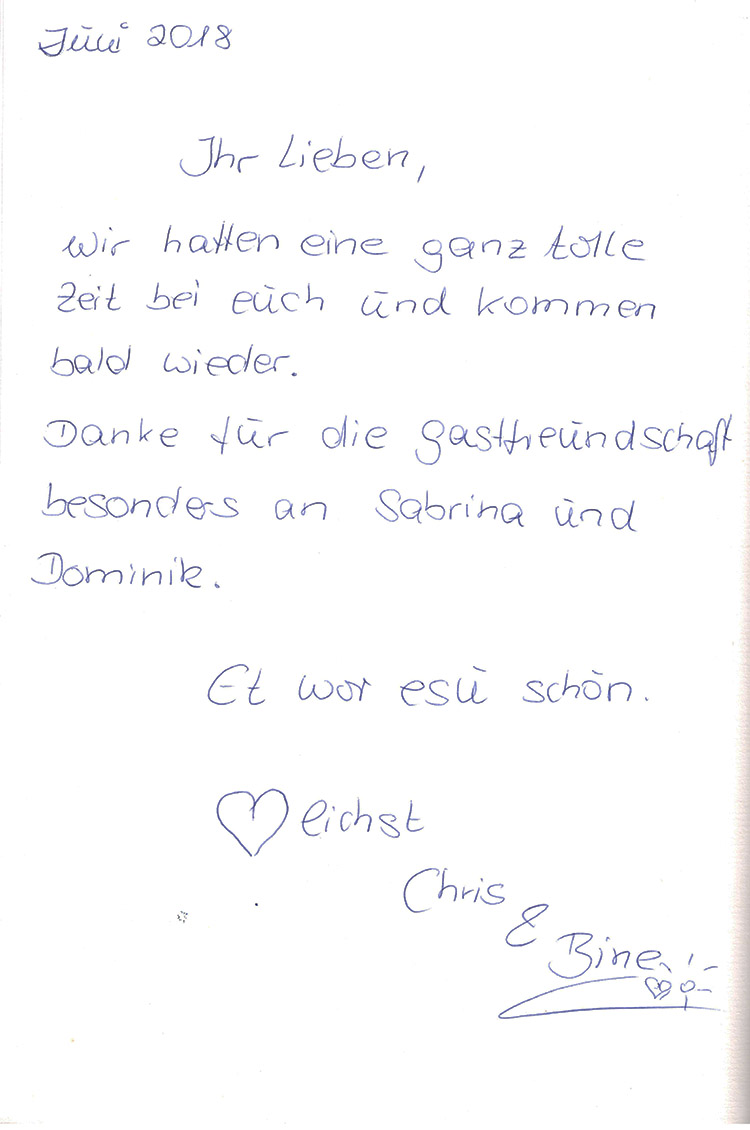 Juni 2018
Ihr Lieben,
wir hatten eine ganz tolle
Zeit bei euch und kommen
bald wieder.
Danke für die Gastfreundschaft
besonders an Sabrina und
Dominik.
Et wor esu schön.
♡lichst
Chris
&
Bine